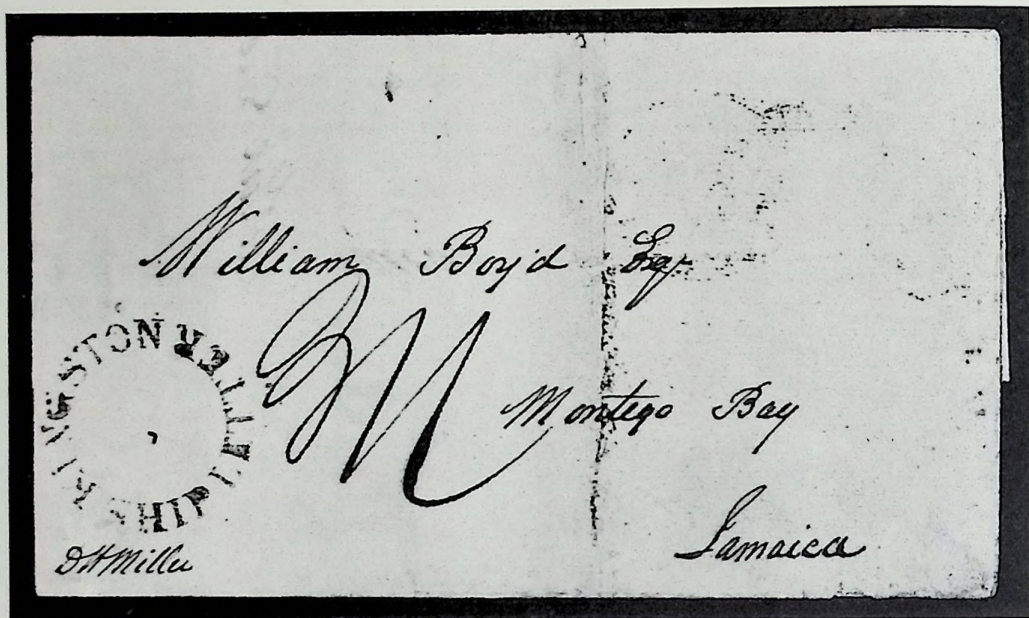 William Boyd Esqr
KINGSTON
SHIP LETTER
Montego Bay
Jamaica
DHMiller